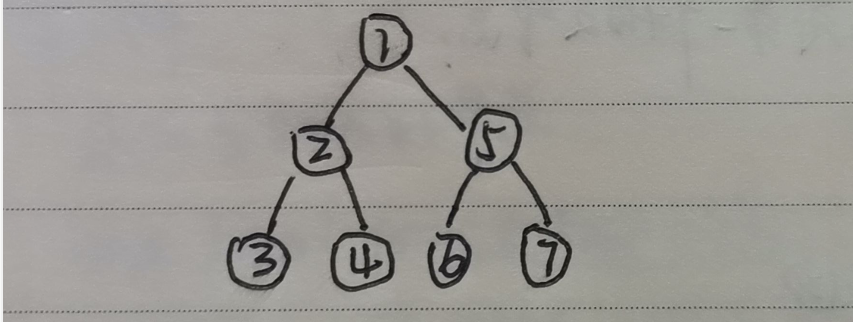 1
2 5
3 4 6 7